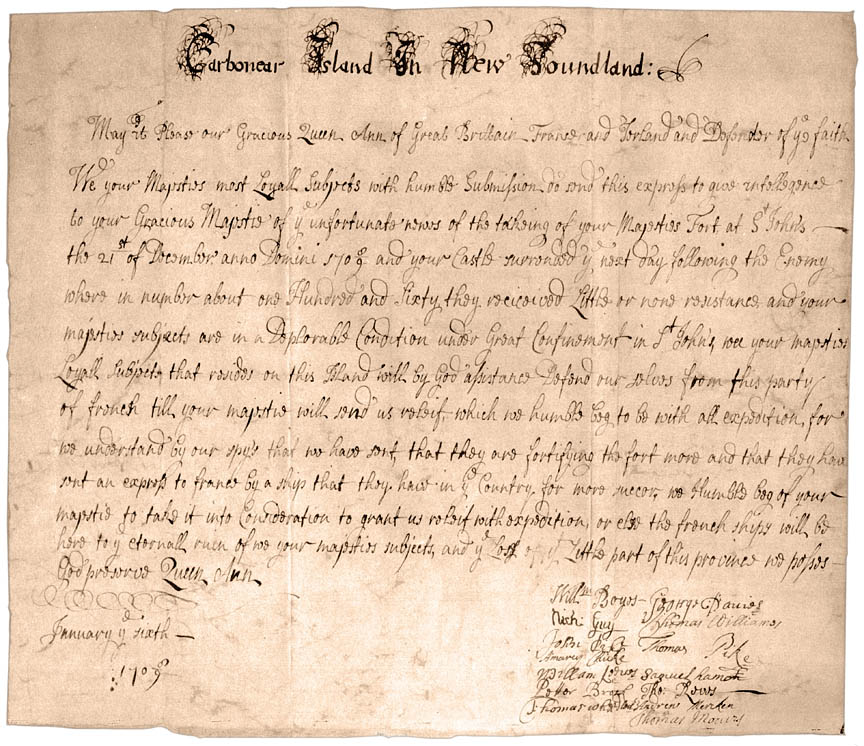 Carbonear Island In New Foundland:
May it Please our Gracious Queen Ann of Great Brittain France and Ierland and Defender of ye faith
We your Majsties most Loyall Subjects with humble Submission do send this express to give intellegence
to your Gracious Majstie of ye unfortunate newes of the takeing of your Majesties Fort at St John's
the 21st of December anno Domini 1708 and your Castle surronded ye next day following the Enemy
where in number about one Hundred and Sixty they reciecved Little or none resistance and your
majsties subjects are in a Deplorable Condition under Great Confinement in St John's, wee your majsties
Loyall Subjects that resides on this Island will by God assistance Defend our selves from this party
of french till your majstie will send us releif, which we humble beg to be with all expedition, for
we understand by our spy's that we have sent that they are fortifying the fort more and that they have
sent an express to france by a ship that they have in ye Country for more succor, we Humble beg of your
majstie to take it into Consideration to grant us releif with expedition, or else the french ships will be
here to ye eternall ruin of we your majsties subjects, and ye Loss of yt Little part of this province we posses
God preserve Queen Ann
January ye sixth
170
Willm Boyes George Davies
Nich: Guy Thomas Williams
John Thomas Pike
William Samuel
Peter Tho:
Thomas
Thomas